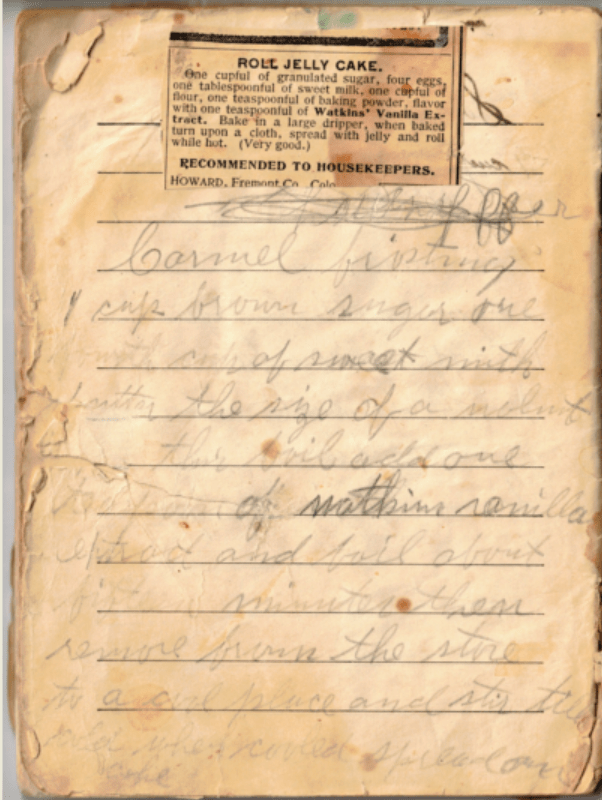 ROLL JELLY CAKE.
One cupful of granulated sugar, four eggs,
one tablespoonful of sweet milk, one cupful of
flour, one teaspoonful of baking powder, flavor
with one teaspoonful of Watkins' Vanilla Ex-
tract. Bake in a large dripper, when baked
turn upon a cloth, spread with jelly and roll
while hot. (Very good.)
RECOMMENDED TO HOUSEKEEPERS.
HOWARD, Fremont Co., Colo
Carmel frosting
1 cup brown sugar one
cup of sweet milk
butter the size of a walnut
this boil add one
teaspoon of watkins vanilla
and boil about
minutes then
remove from the stove
to a cool place and stir
when cooled spread on
cake